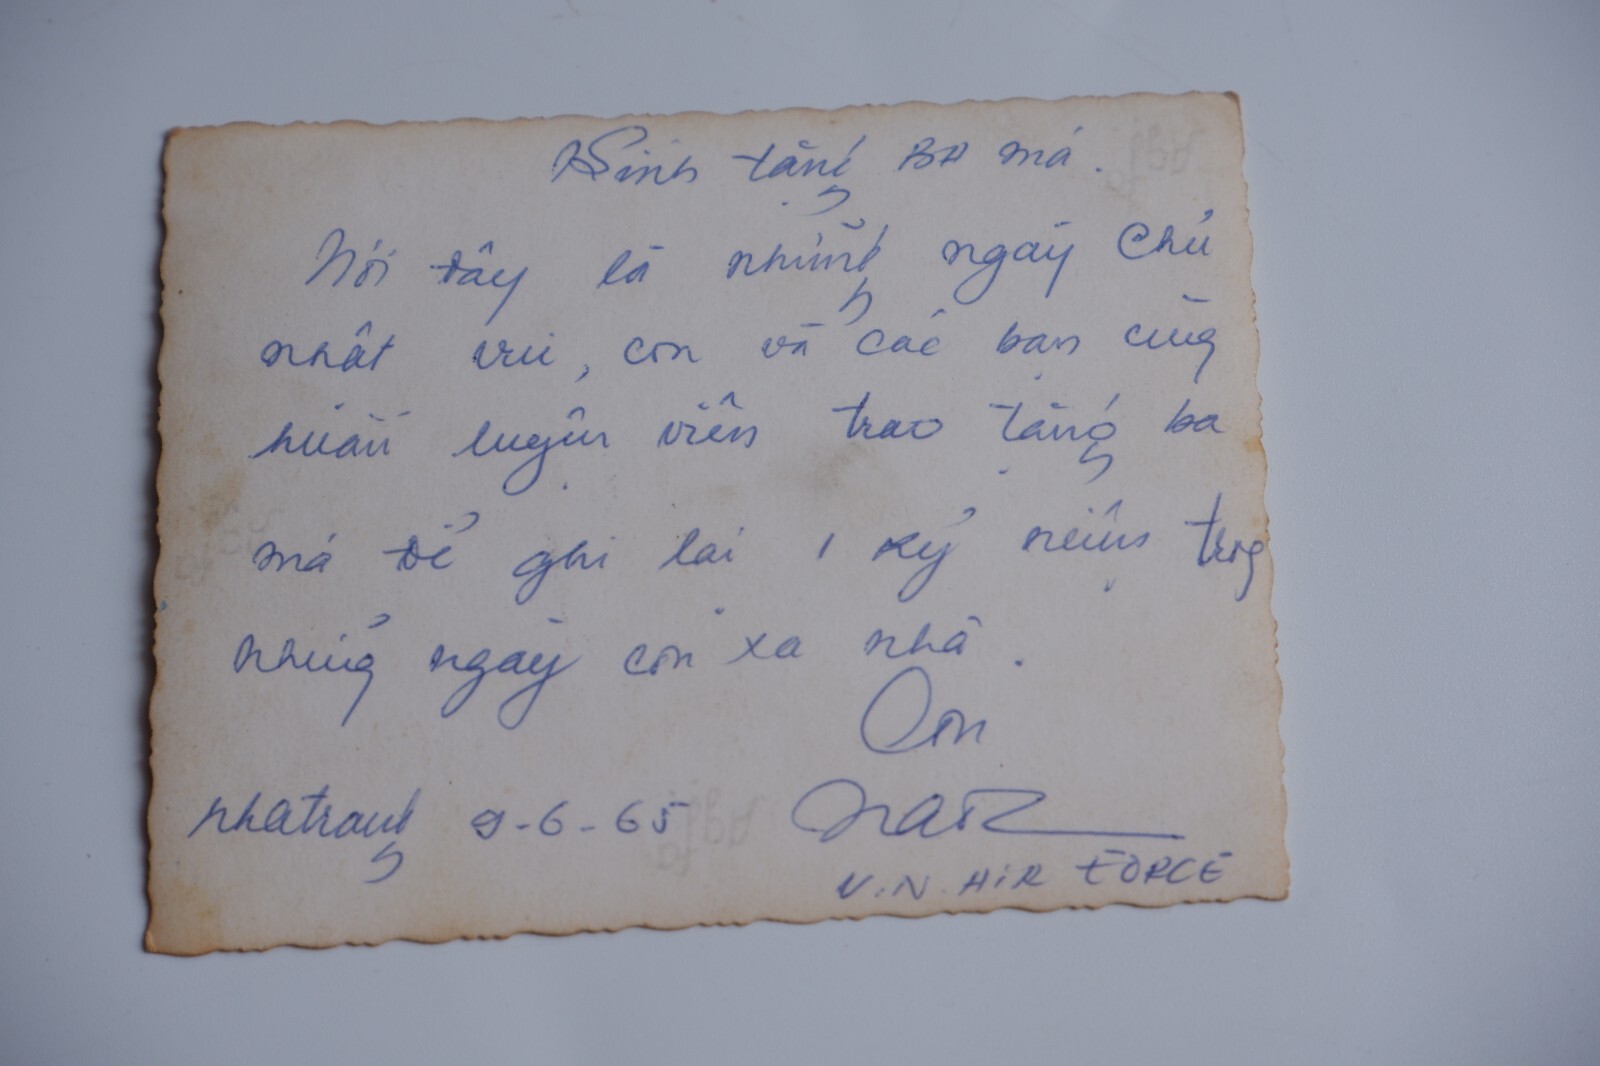 Kính tặng BA má.
Nơi đây là những ngày Chủ
nhật vui, con và các bạn cùng
huấn luyện viên trao tặng ba
má để ghi lại 1 kỷ niệm trog
những ngày con xa nhà.
Con
nhatrang 9-6-65
V.N. AIR FORCE
agfa
agfa
agfa